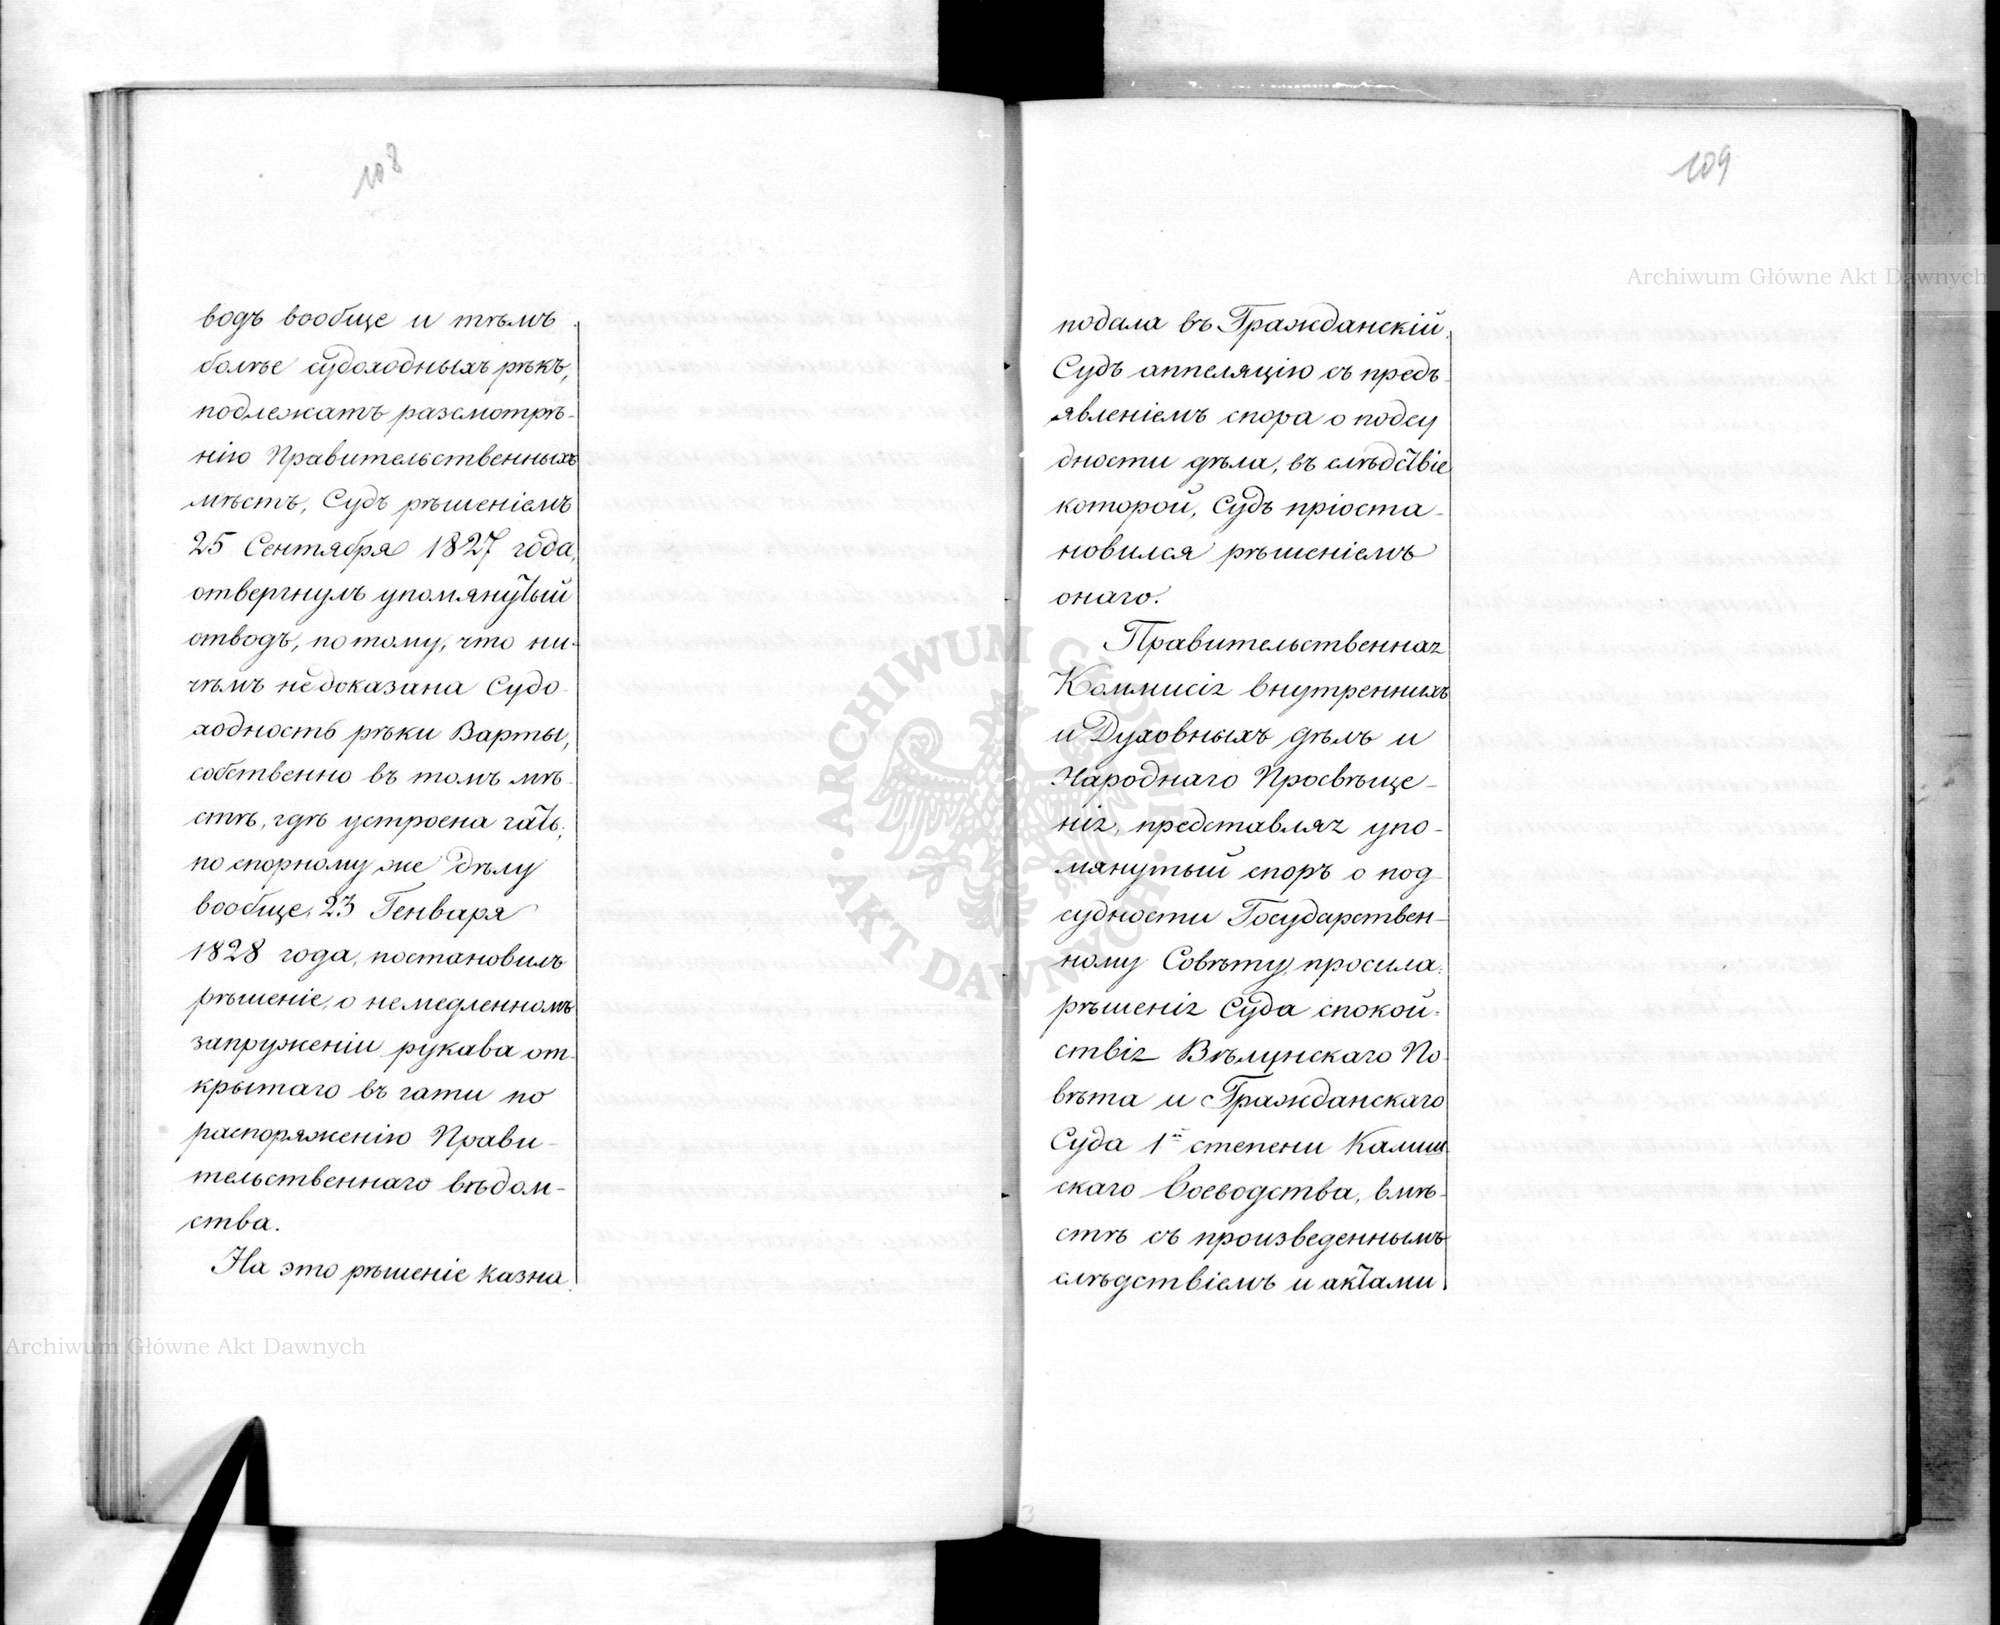 108
водъ вообще и тѣмъ
болѣе судоходныхъ рѣкъ,
подлежатъ разсмотрѣ-
нію Правительственныхъ
мѣстъ, Судъ рѣшеніемъ
25 Сентября 1827 года,
отвергнулъ упомянутый
отводъ, потому, что ни-
чѣмъ недоказана Судо-
ходность рѣки Варты,
собственно въ томъ мѣ-
стѣ, гдѣ устроена гать;
по спорному же дѣлу
вообще, 23 Генваря
1828 года, постановилъ
рѣшеніе, о немедленномъ
запруженіи рукава от-
крытаго въ гати по
распоряженію Прави-
тельственнаго вѣдом-
ства.
На это рѣшеніе казна
109
подала въ Гражданскій
Судъ аппеляцію съ предъ-
явленіемъ спора о подсу
дности дѣла, въ слѣдствіе
которой, Судъ пріоста-
новился рѣшеніемъ
онаго.
Правительственная
Коммисія Внутреннихъ
и Духовныхъ дѣлъ и
Народнаго Просвѣще-
нія, представляя упо-
мянутый споръ о под-
судности Государствен-
ному Совѣту, просила
рѣшенія Суда спокой-
ствія Вѣлунскаго По-
вѣта и Гражданскаго
Суда 1й степени Калиш-
скаго Воеводства, вмѣ-
стѣ съ произведеннымъ
слѣдствіемъ и актами
Archiwum Główne Akt Dawnych
Archiwum Główne Akt Dawnych
ARCHIWUM GŁÓWNE AKT DAWNYCH